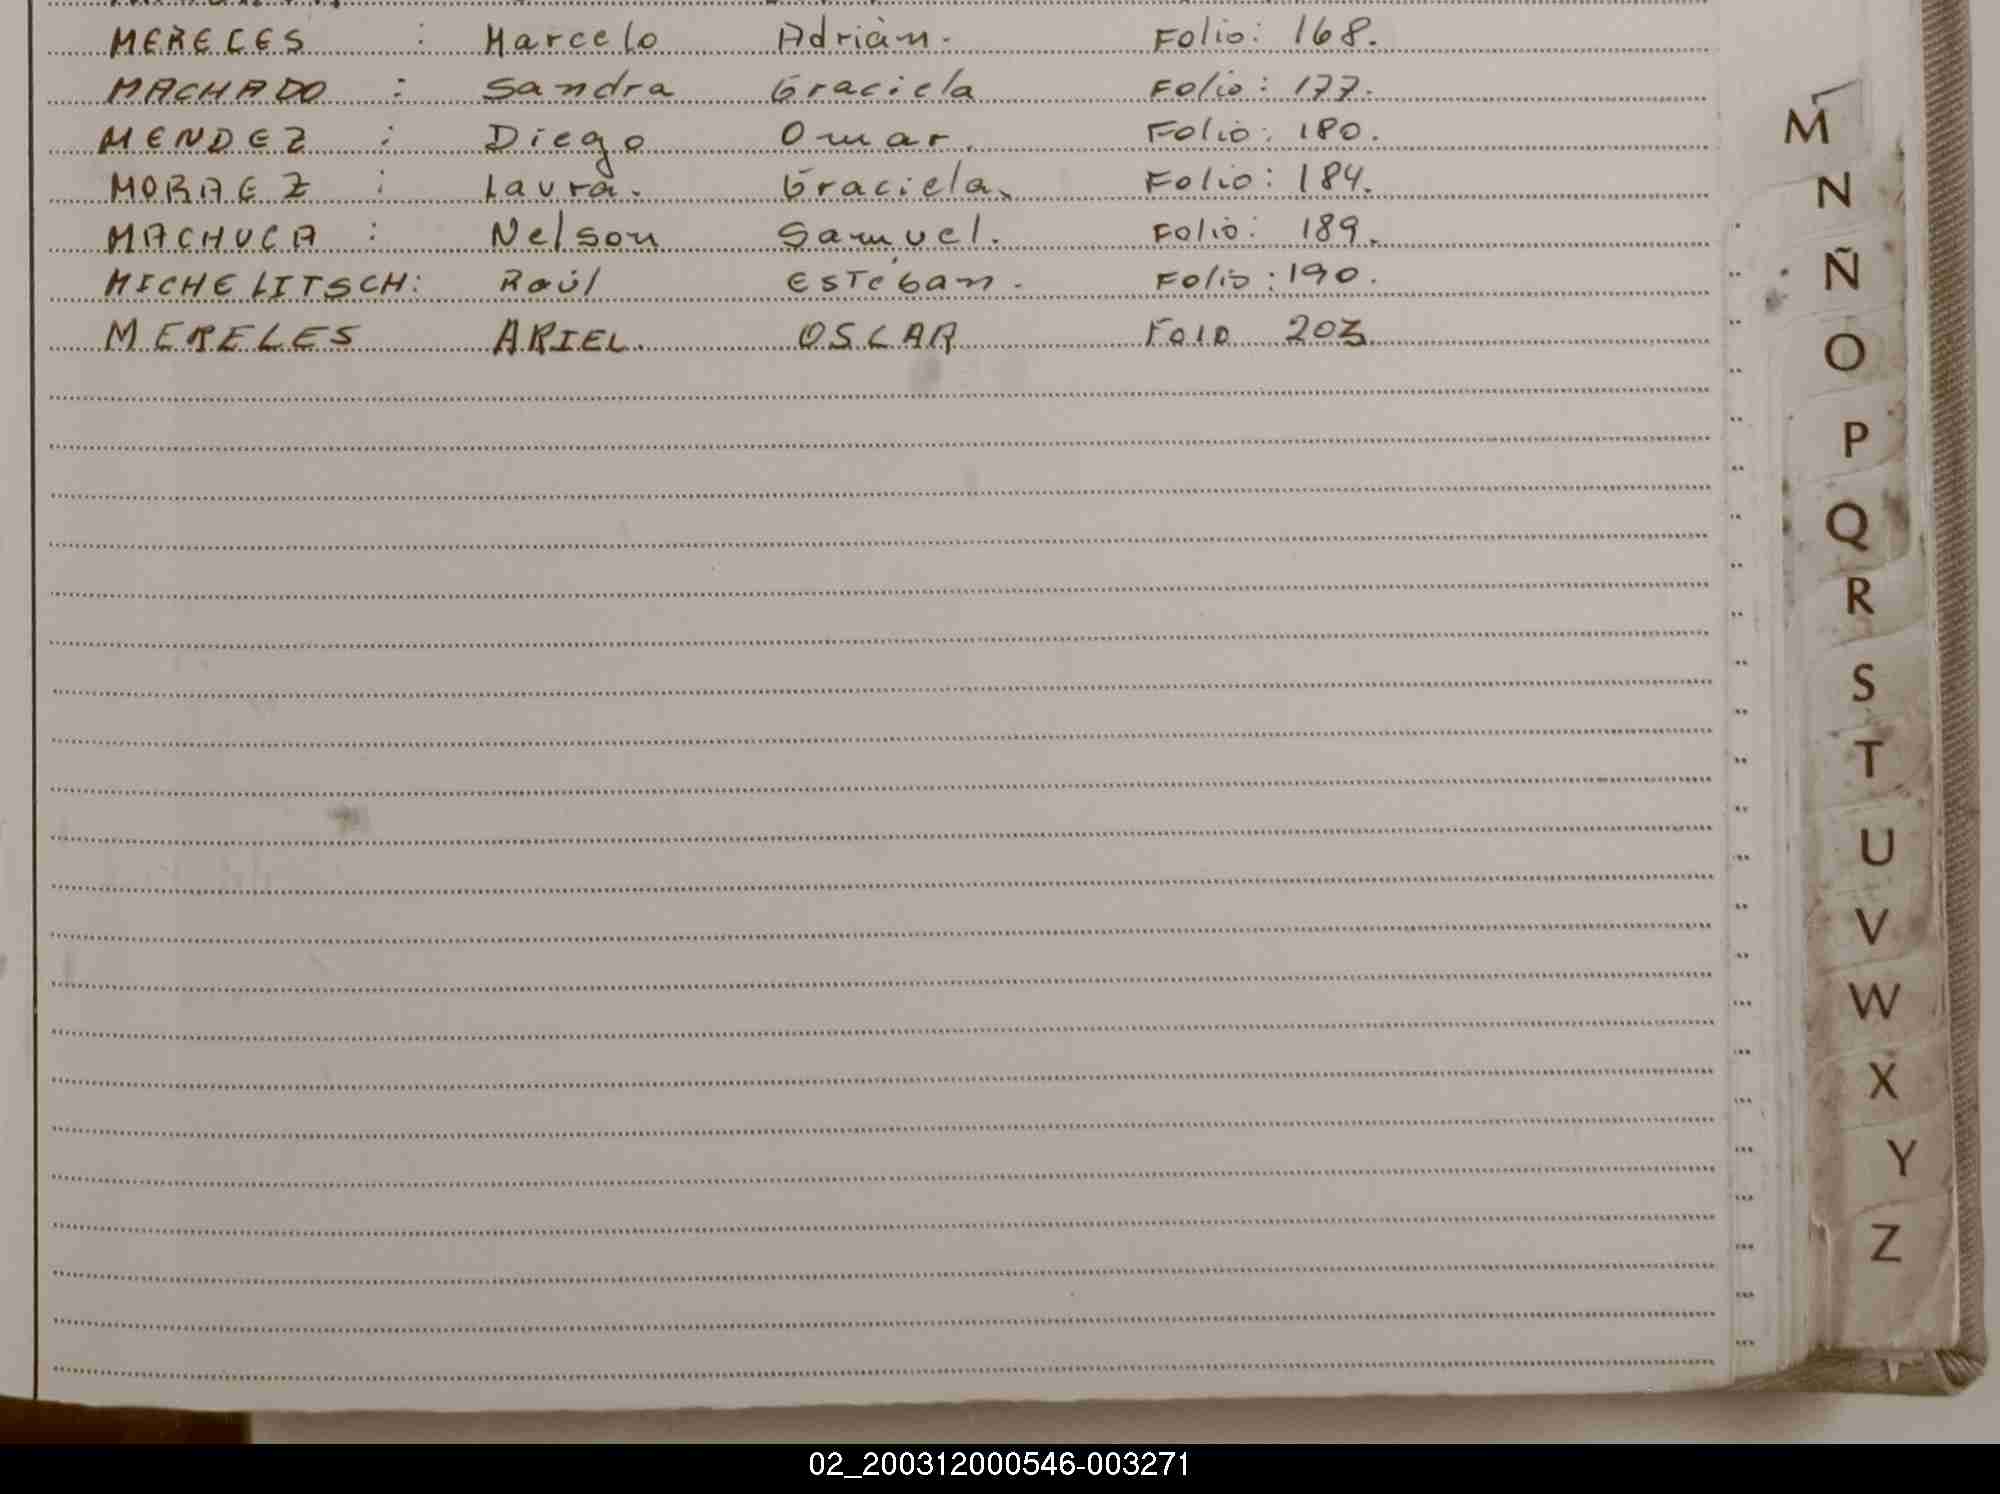 MERECES : Marcelo Adriàn. Folio: 168.
MACHADO : Sandra Graciela Folio: 177.
MENDEZ : Diego Omar. Folio: 180.
MORAEZ : Laura. Graciela. Folio: 184.
MACHUCA : Nelson Samuel. Folio: 189.
MICHELITSCH: Raúl Esteban. Folio: 190.
MERELES ARIEL. OSCAR Folio 203.
M
N
Ñ
O
P
Q
R
S
T
U
V
W
X
Y
Z
02_200312000546-003271